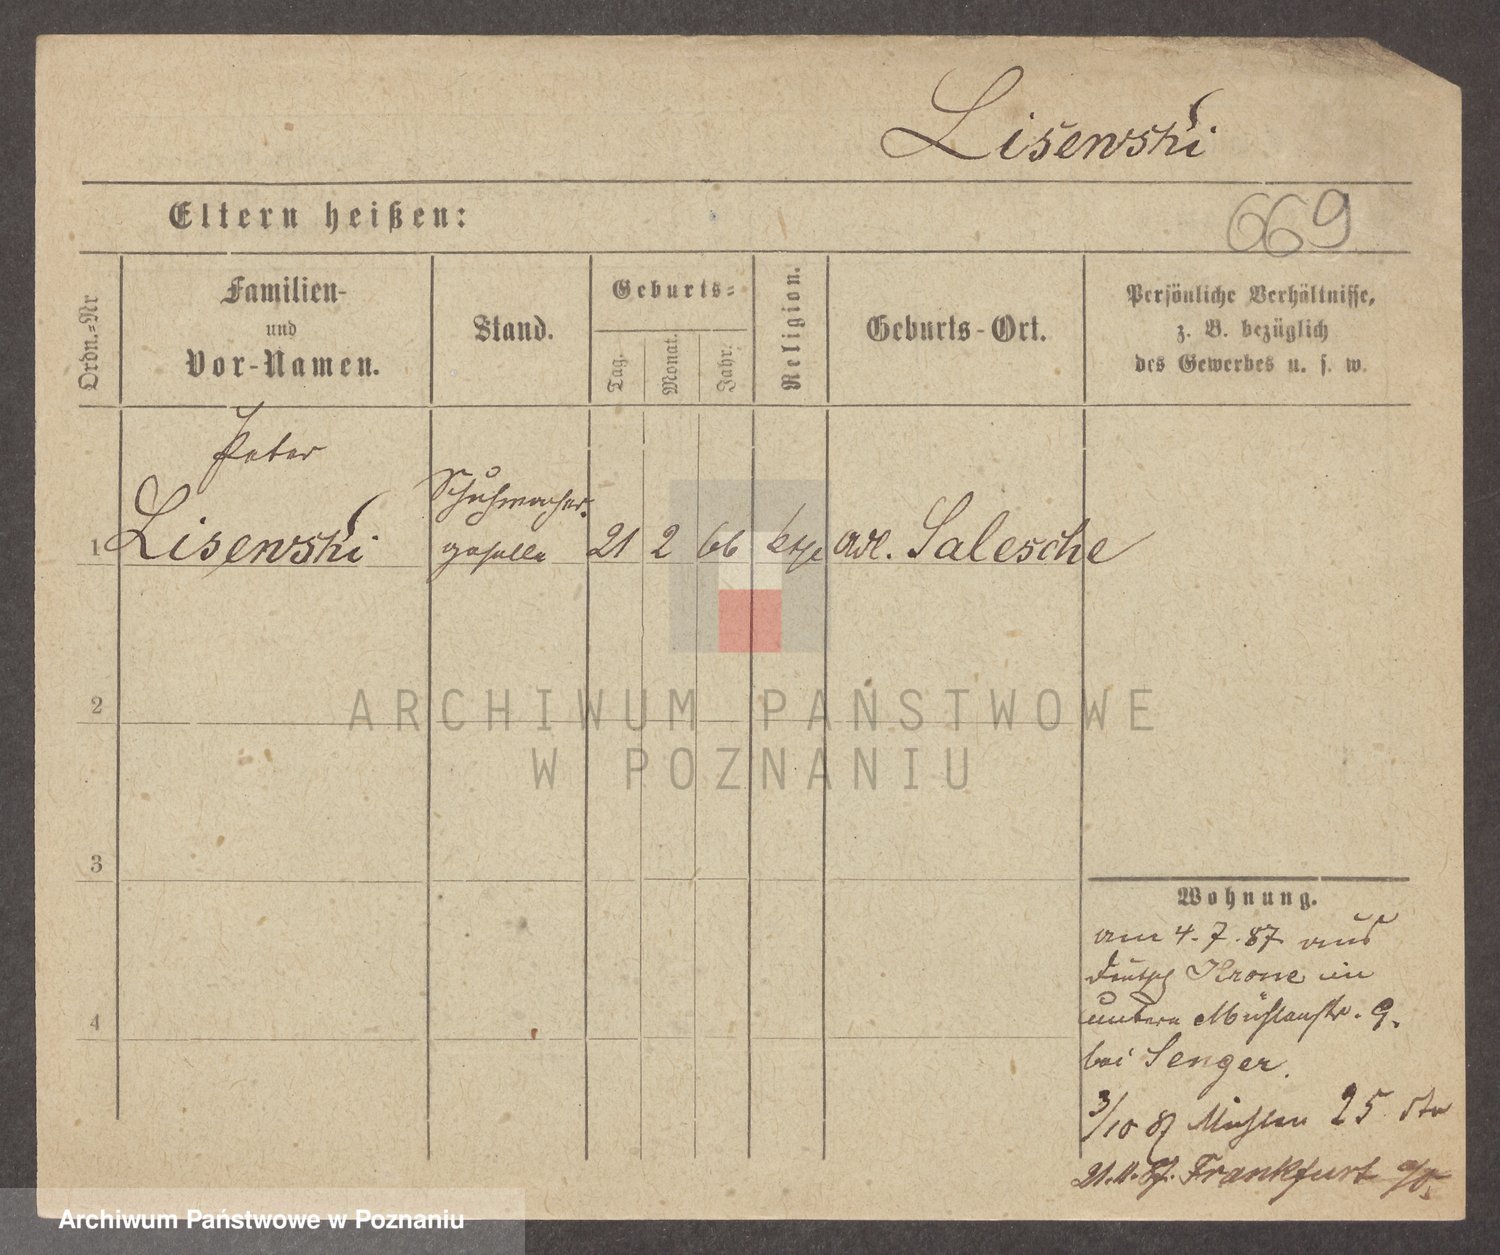 Lisewski
Eltern heißen:
669
Ordn.-Nr
Familien-
und
Vor-Namen.
Stand.
Geburts-
Tag.
Monat.
Jahr.
Religion.
Geburts-Ort.
Persönliche Verhältnisse,
z. B. bezüglich
des Gewerbes u. s. w.
Peter
Schuhmacher-
1 Lisewski geselle 21 2 66 adl. Salesche
2
ARCHIWUM PAŃSTWOWE
W POZNANIU
3
Wohnung.
am 4.7.87 aus
Deutsch Krone in
untern Mühlenstr. 9.
bei Senger.
3/10 87 Mühlen 25 Str
21.11.87. Frankfurt a/O.
4
Archiwum Państwowe w Poznaniu